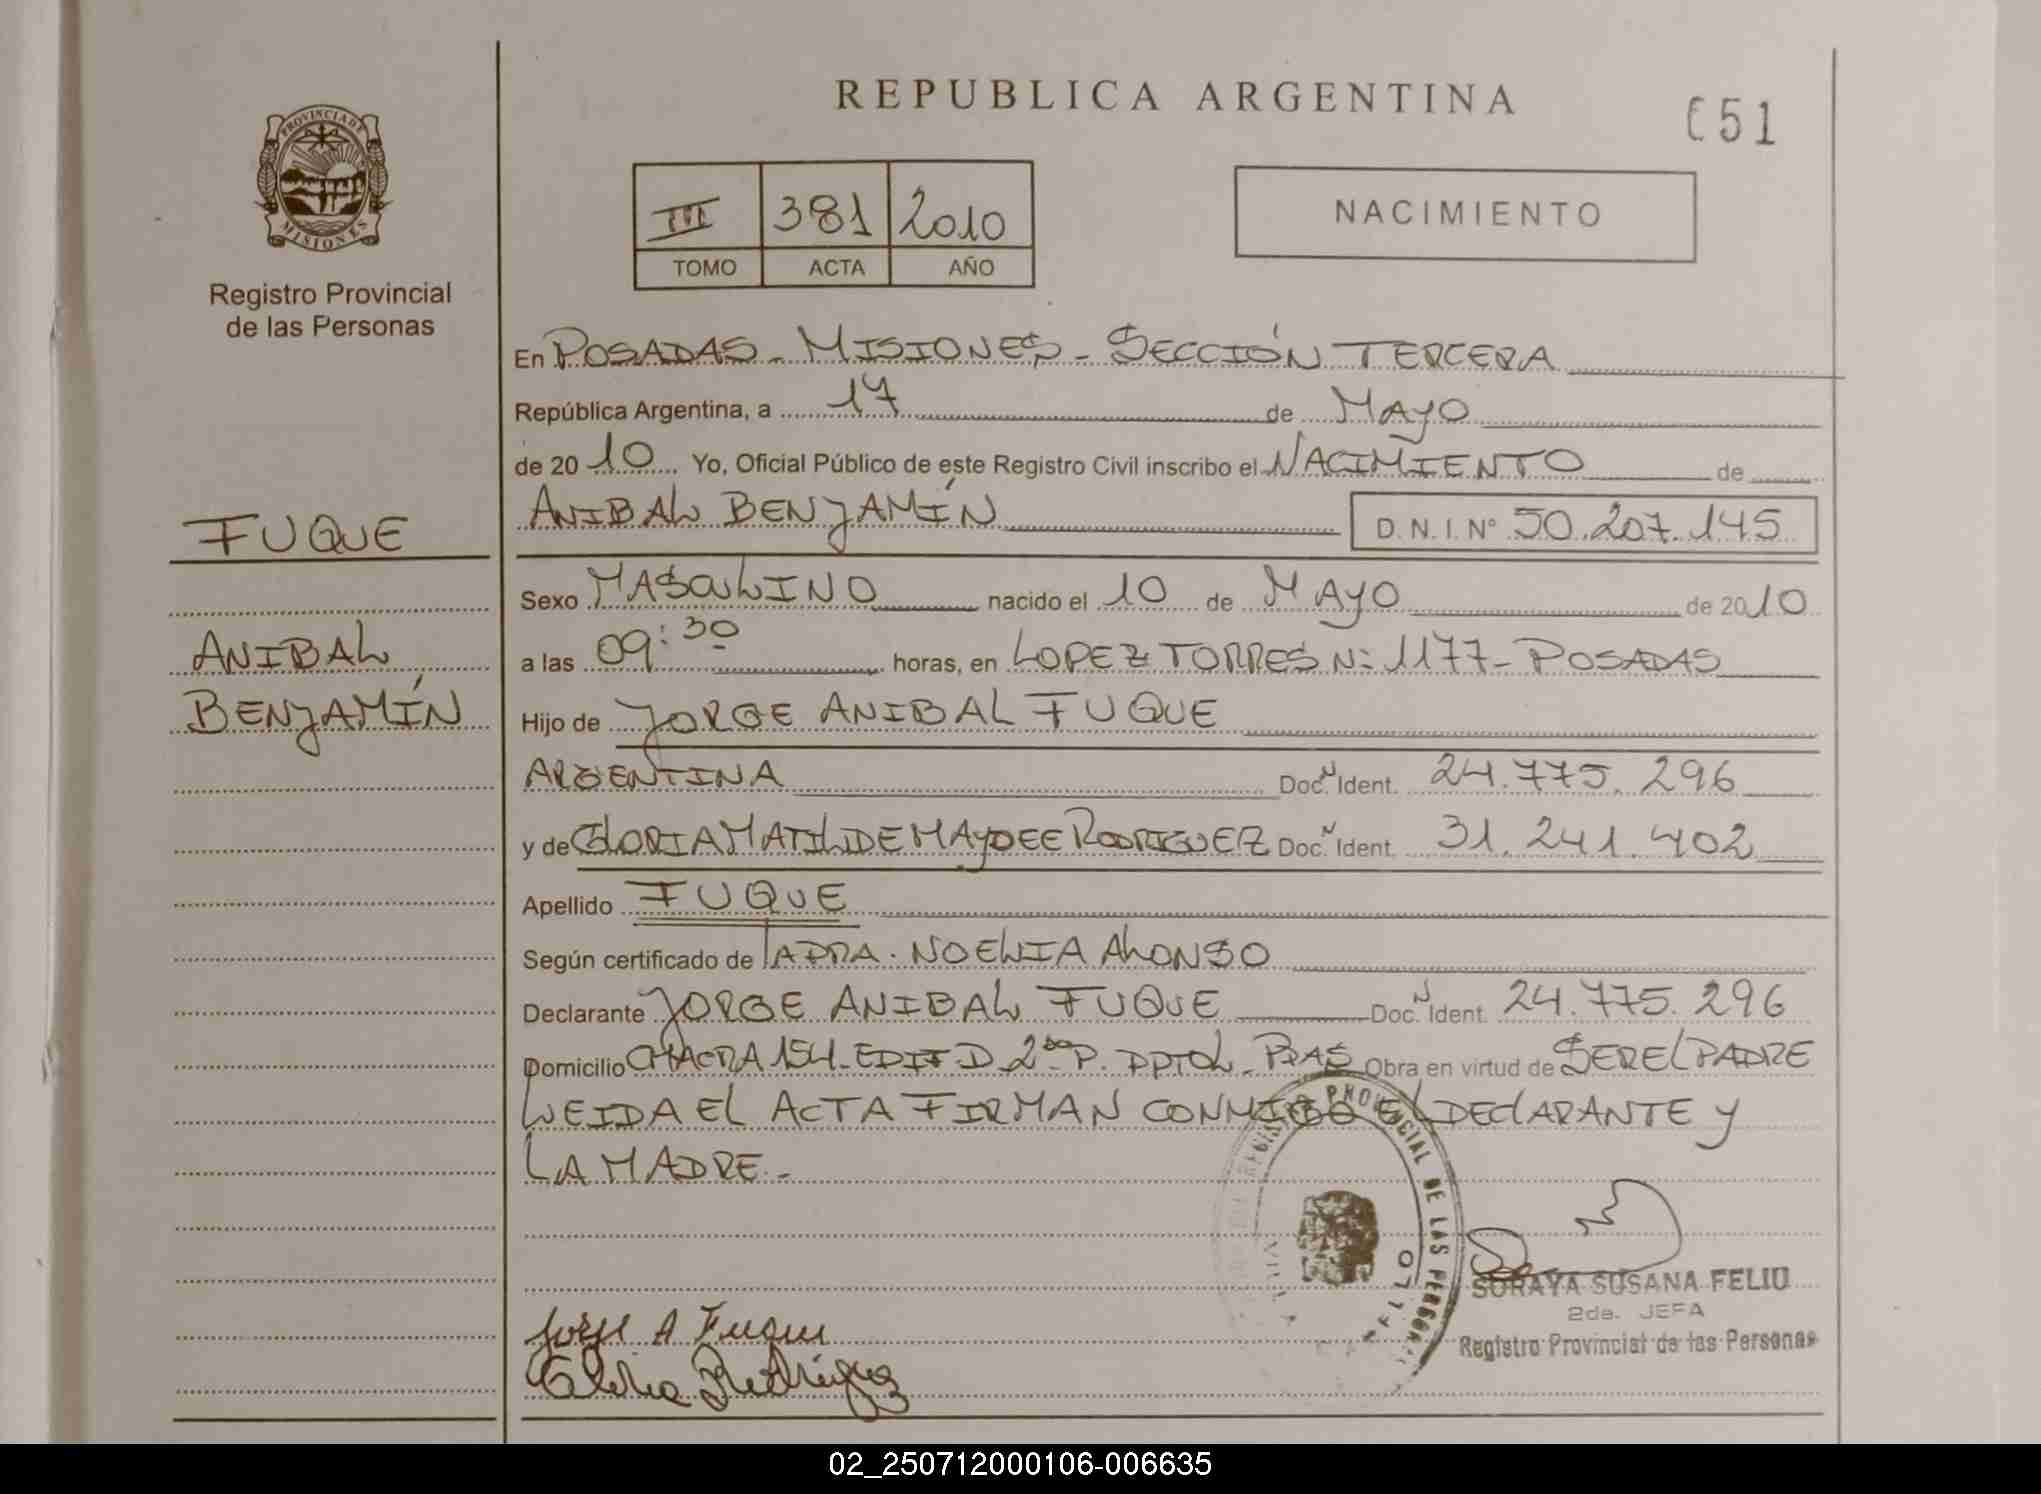 REPUBLICA ARGENTINA
051
PROVINCIA DE
MISIONES
Registro Provincial
de las Personas
III 381 2010
TOMO ACTA AÑO
NACIMIENTO
En POSADAS - MISIONES - SECCIÓN TERCERA
República Argentina, a 17 de MAYO
de 20 10 Yo, Oficial Público de este Registro Civil inscribo el NACIMIENTO de
ANIBAL BENJAMÍN D.N.I. Nº 50.207.145
FUQUE
ANIBAL
BENJAMÍN
Sexo MASCULINO nacido el 10 de MAYO de 2010
a las 09:30 horas, en LOPEZ TORRES Nº 1177 - POSADAS
Hijo de JORGE ANIBAL FUQUE
ARGENTINA Doc. N Ident. 24.775.296
y de GLORIA MATILDE HAYDEE RODRIGUEZ Doc. N Ident. 31.241.402
Apellido FUQUE
Según certificado de LA DRA. NOELIA ALONSO
Declarante JORGE ANIBAL FUQUE Doc. N Ident. 24.775.296
Domicilio CHACRA 154 - EDIF D 2do P. DPTO L - PDAS Obra en virtud de SER EL PADRE
LEIDA EL ACTA FIRMAN CONMIGO EL DECLARANTE Y
LA MADRE.-
PROVINCIAL DE LAS PERSONAS
SORAYA SUSANA FELIU
2da. JEFA
Registro Provincial de las Personas
Jorge A Fuque
Gloria Rodriguez
02_250712000106-006635